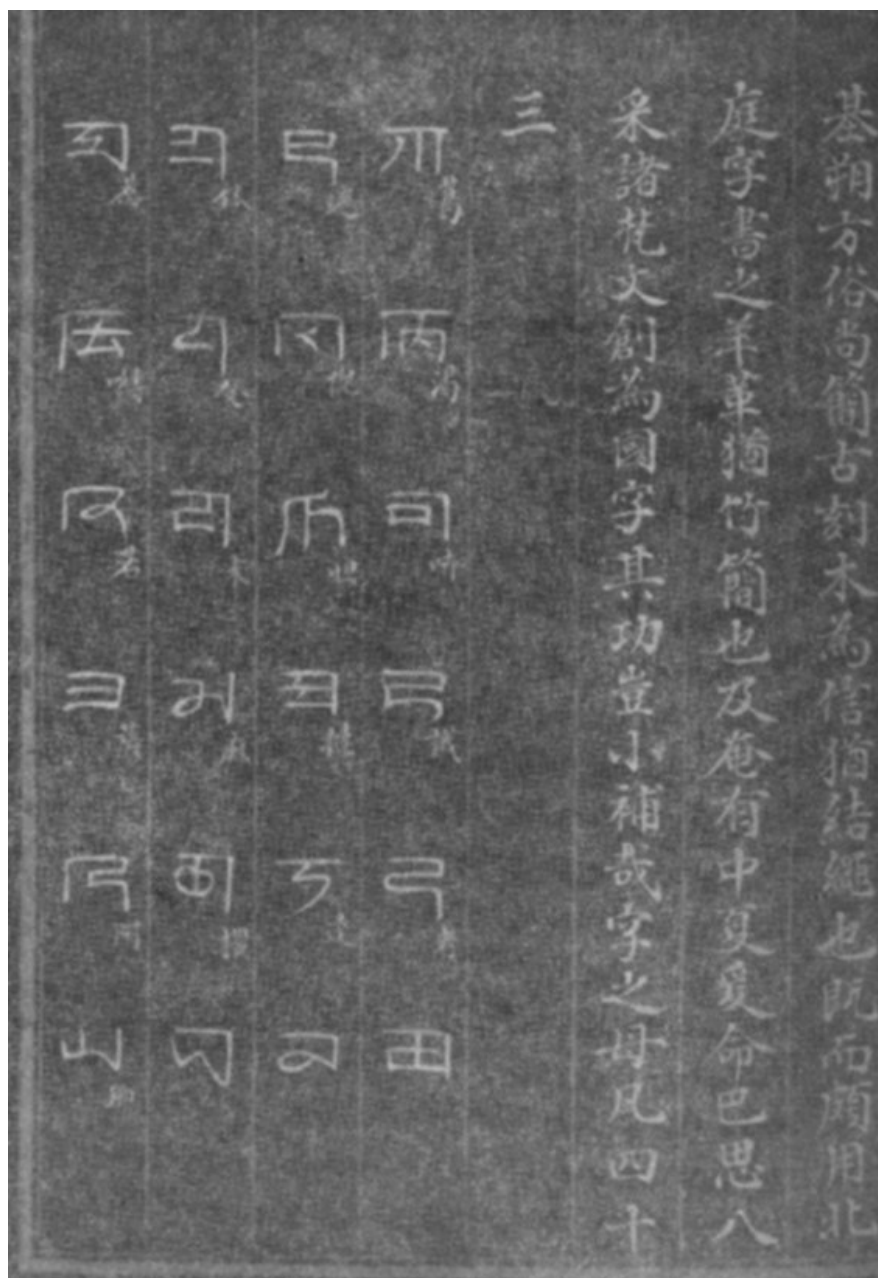 基朔方俗尚簡古刻木為信猶結繩也既而頗用北
庭字書之羊革猶竹簡也及奄有中夏爰命巴思八
采諸梵文創為國字其功豈小補哉字之母凡四十
三
ꡀ葛 ꡁ渴 ꡂ ꡃ誐 ꡄ者 ꡅ
ꡆ ꡇ倪 ꡈ怛 ꡉ撻 ꡊ達 ꡋ
ꡌ鉢 ꡍ癹 ꡎ末 ꡏ麻 ꡐ拶 ꡑ
ꡒ ꡓ嚩 ꡔ若 ꡕ薩 ꡖ阿 ꡗ耶